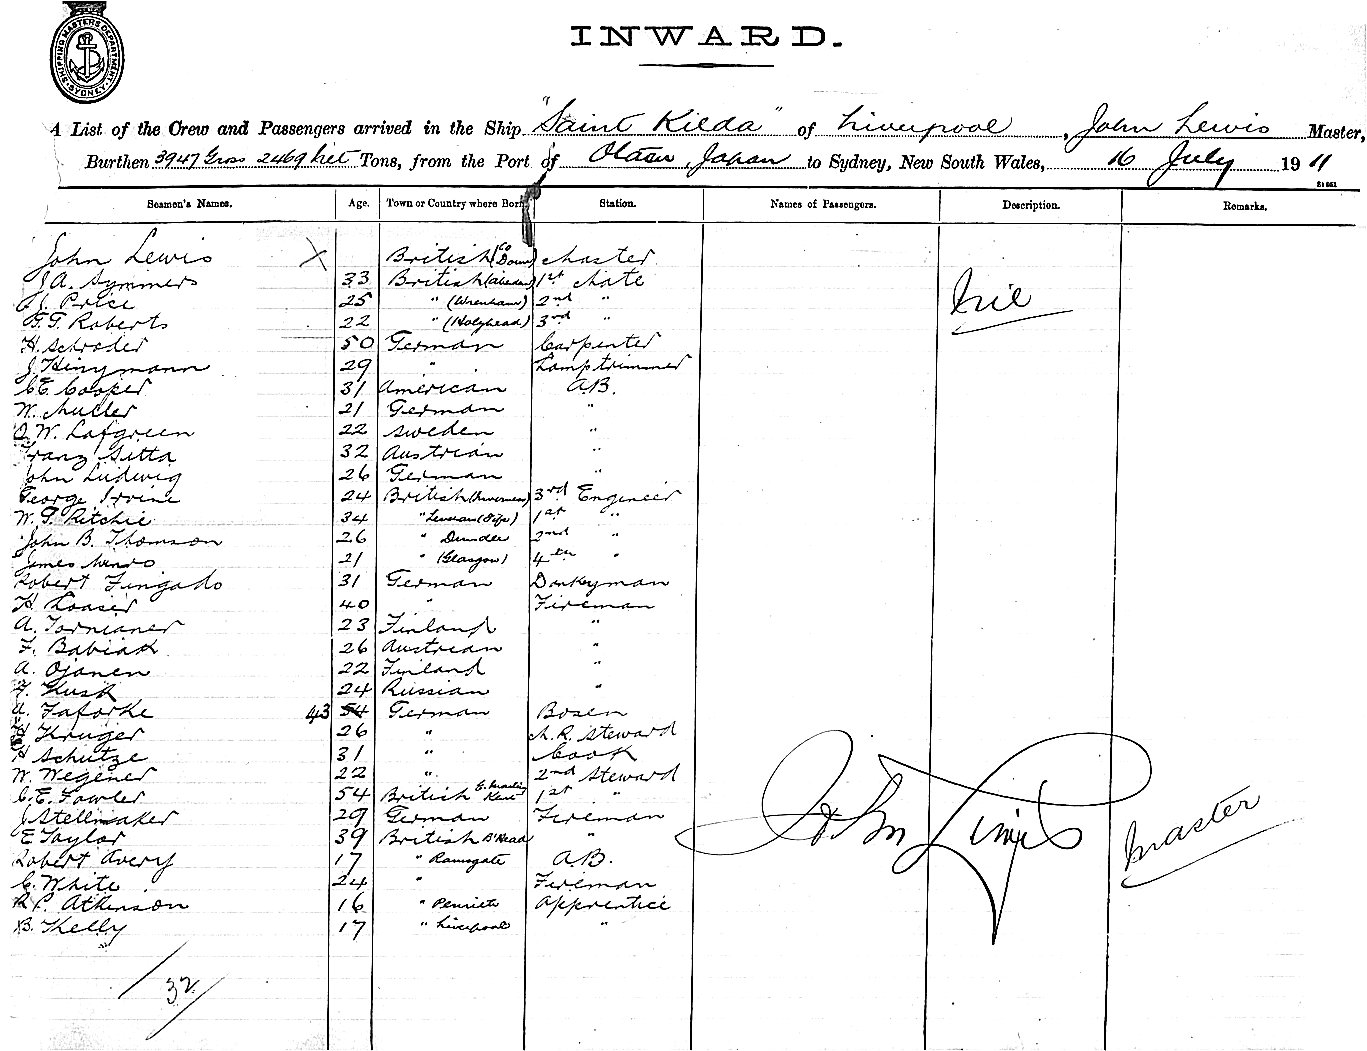 SHIPPING MASTERS DEPARTMENT SYDNEY
INWARD.
A List of the Crew and Passengers arrived in the Ship "Saint Kilda" of Liverpool, John Lewis Master,
Burthen 3947 Gross 2469 Net Tons, from the Port of Otaru, Japan to Sydney, New South Wales, 16 July 1911
Seamen's Names. Age. Town or Country where Born Station. Names of Passengers. Description. Remarks.
John Lewis X British (Co Down) Master
J.A. Symmers 33 British (Aberdeen) 1st Mate
J. Price 25 " (Wrexham) 2nd " Nil
G.G. Roberts 22 " (Holyhead) 3rd "
H. Schroder 50 German Carpenter
J. Hinymann 29 " Lamptrimmer
C.E. Cooper 31 American A.B.
W. Muller 21 German "
O.W. Lofgreen 22 Sweden "
Franz Sitta 32 Austrian "
John Ludwig 26 German "
George Irvine 24 British (Inverness) 3rd Engineer
W.G. Ritchie 34 " Leven (Fife) 1st "
John B. Thomson 26 " Dundee 2nd "
James Munro 21 " (Glasgow) 4th "
Robert Zingado 31 German Donkeyman
H. Loaser 40 " Fireman
A. Tornianer 23 Finland "
F. Babiak 26 Austrian "
A. Ojanen 22 Finland "
F. Kusk 24 Russian "
A. Faforke 43 54 German Bosen
H. Kruger 26 " M.R. Steward
H Schutze 31 " Cook
W. Wegener 22 " 2nd Steward
C.E. Fowler 54 British Kent 1st "
J Stellmaker 29 German Fireman
E Taylor 39 British B'Head "
Robert Avery 17 " Ramsgate A.B.
C. White 24 " Fireman
R P. Atkinson 16 " Penrith Apprentice
B. Kelly 17 " Liverpool "
John Lewis Master
32